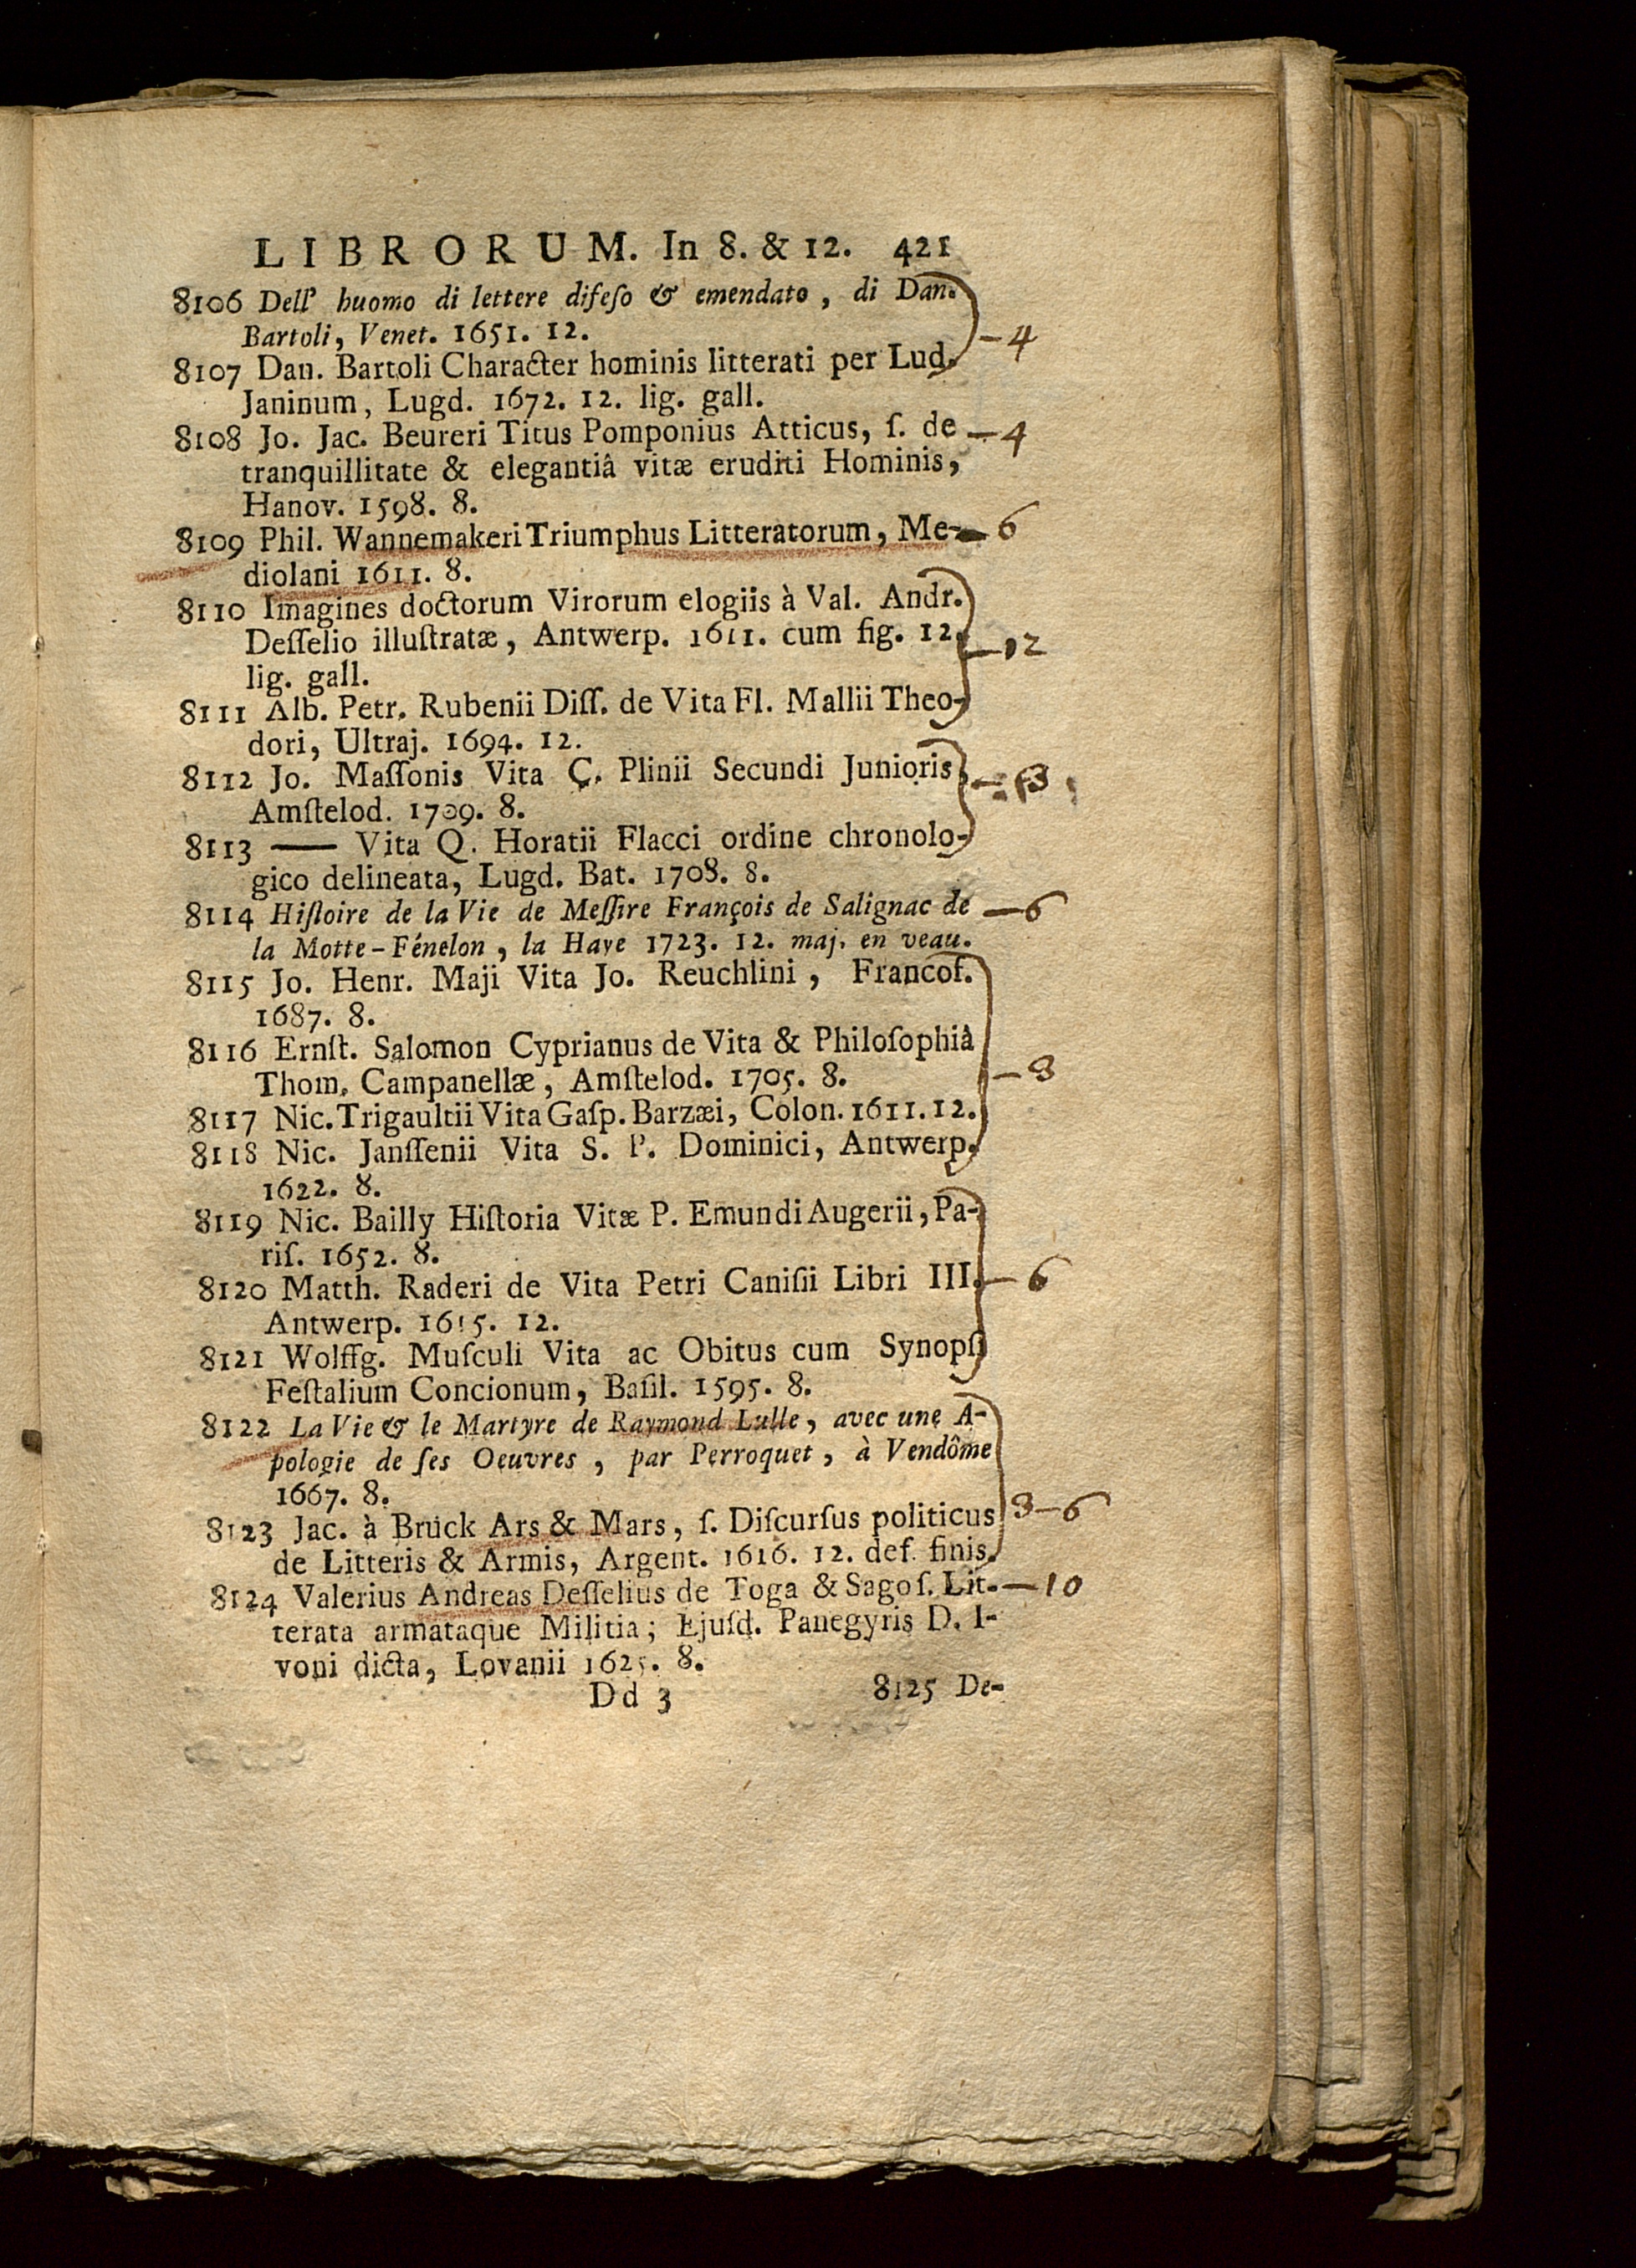 LIBRORUM. In 8. & 12. 421
8106 Dell' huomo di lettere difeſo & emendato, di Dan.
Bartoli, Venet. 1651. 12. -4
8107 Dan. Bartoli Character hominis litterati per Lud.
Janinum, Lugd. 1672. 12. lig. gall.
8108 Jo. Jac. Beureri Titus Pomponius Atticus, ſ. de -4
tranquillitate & elegantiâ vitæ eruditi Hominis,
Hanov. 1598. 8.
8109 Phil. Wannemakeri Triumphus Litteratorum, Me- 6
diolani 1611. 8.
8110 Imagines doctorum Virorum elogiis à Val. Andr.
Deſſelio illuſtratæ, Antwerp. 1611. cum fig. 12. -12
lig. gall.
8111 Alb. Petr. Rubenii Diſſ. de Vita Fl. Mallii Theo-
dori, Ultraj. 1694. 12.
8112 Jo. Maſſonis Vita C. Plinii Secundi Junioris,
Amſtelod. 1709. 8.
8113 —— Vita Q. Horatii Flacci ordine chronolo-
gico delineata, Lugd. Bat. 1708. 8.
8114 Hiſtoire de la Vie de Meſſire François de Salignac de -6
la Motte-Fénelon, la Haye 1723. 12. maj. en veau.
8115 Jo. Henr. Maji Vita Jo. Reuchlini, Francof.
1687. 8.
8116 Ernſt. Salomon Cyprianus de Vita & Philoſophiâ
Thom. Campanellæ, Amſtelod. 1705. 8. -8
8117 Nic. Trigaultii Vita Gaſp. Barzæi, Colon. 1611. 12.
8118 Nic. Janſſenii Vita S. P. Dominici, Antwerp.
1622. 8.
8119 Nic. Bailly Hiſtoria Vitæ P. Emundi Augerii, Pa-
riſ. 1652. 8.
8120 Matth. Raderi de Vita Petri Caniſii Libri III. -6
Antwerp. 1615. 12.
8121 Wolffg. Muſculi Vita ac Obitus cum Synopſi
Feſtalium Concionum, Baſil. 1595. 8.
8122 La Vie & le Martyre de Raymond Lulle, avec une A-
pologie de ſes Oeuvres, par Perroquet, à Vendôme
1667. 8.
8123 Jac. à Bruck Ars & Mars, ſ. Diſcurſus politicus 8-6
de Litteris & Armis, Argent. 1616. 12. def. finis.
8124 Valerius Andreas Deſſelius de Toga & Sago ſ. Lit- -10
terata armataque Militia; Ejuſd. Panegyris D. I-
voni dicta, Lovanii 1625. 8.
Dd 3 8125 De-